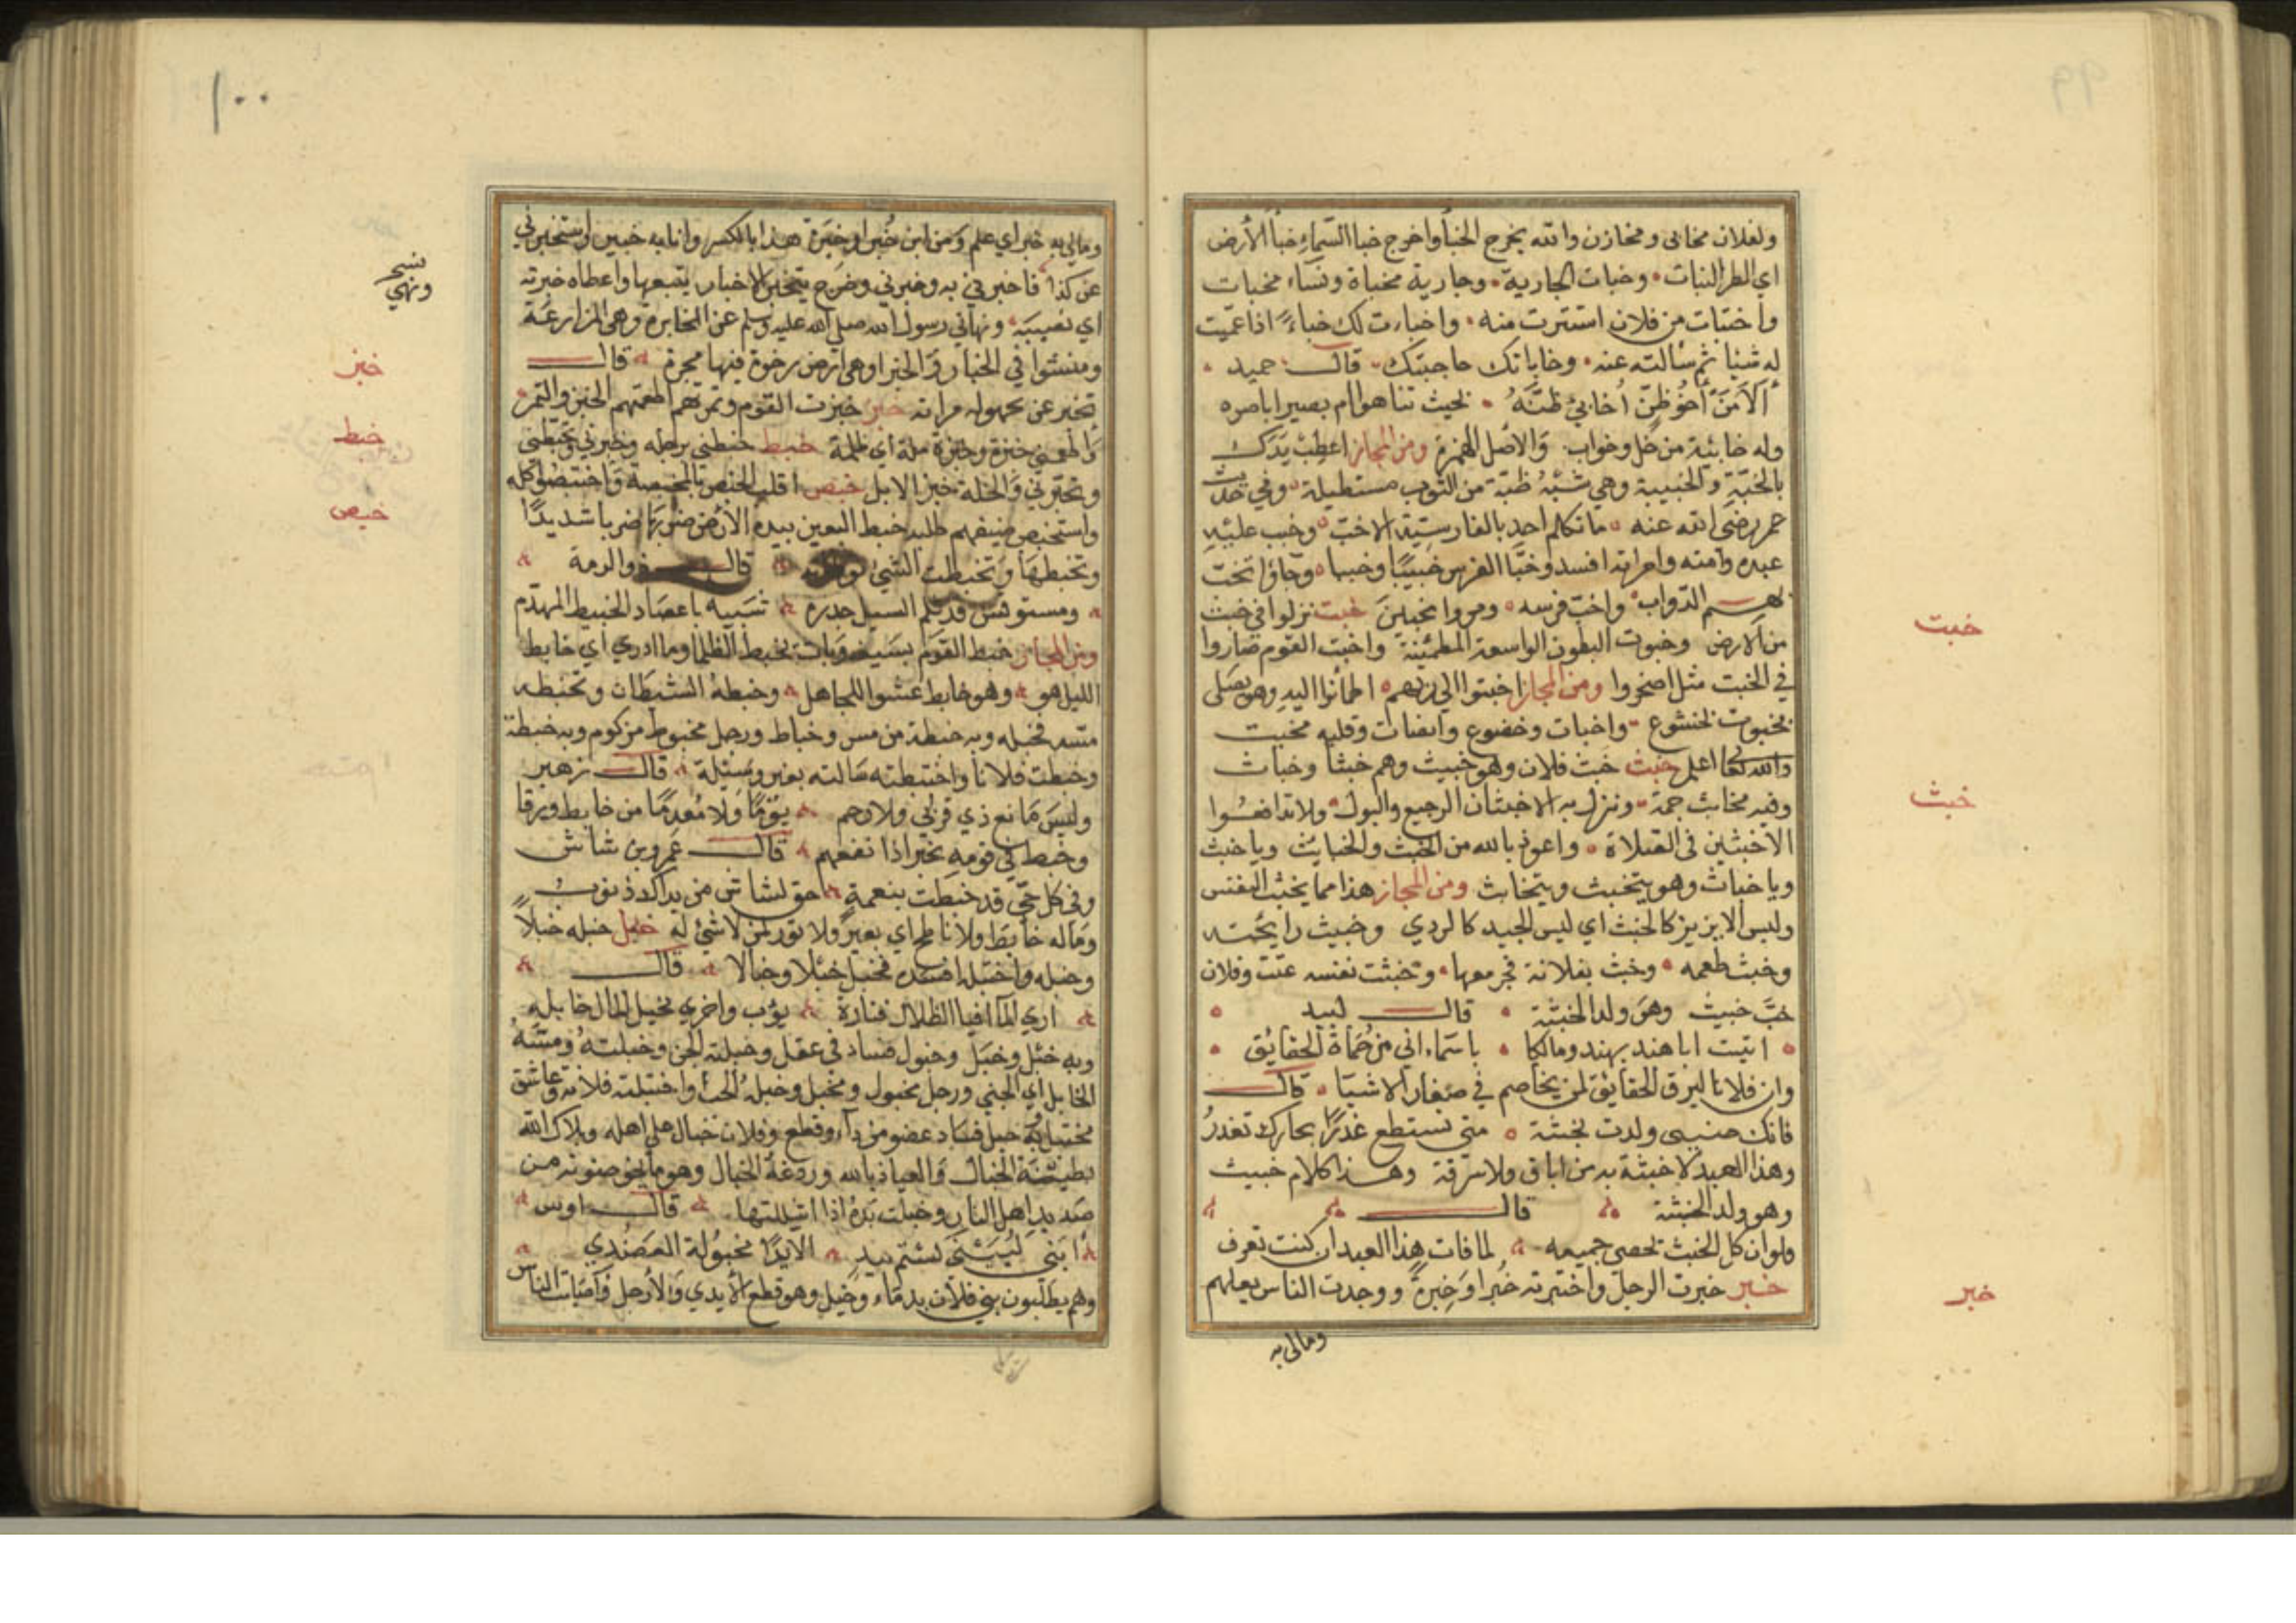 ولفلان مخابى ومخازن والله يخرج الخبأ واخرج خبا السَّماءِ خبأَ الأرض
اي المطر النبات وخبات الجارية وجارية مخباة ونساء مخبات
واختبات من فلان استترت منه واخبارت لك خباءً اذا عميت
له شيا ثم سالته عنه وخاباتك حاجيتك قال حميد
ألا مَنْ أحُوُظِنّ أُخابئ ظنَّهُ بخيث تناهوا ام بصير اباصره
وله خابئية من خل وخواب والأصل الهمزة ومن المجاز اعطِبْ يَدَك
بالخُبّةِ والخبيبة وهي شبْهُ طبّة من الثوب مستطيلة وفي حديث
عمر رضي الله عنه ما تكلم احد بالفارسيّة الا خبّ وخبب عليه
عبده وامته وامراته افسد وخبّ الفرس خبيبًا وخببا وجاؤا تخبّ
بهم الدّواب واخبّ فرسه ومروا مخبين خبت نزلوا في خبت
من الارض وخبوت البطون الواسعة المطمئينة واخبت القوم صاروا
في الخبت مثل اصحروا ومن المجاز اخبتوا الى ربهم اطمأنوا اليه وهو يصلى
بخبوت لخشوع واخبات وخضوع وانصات وقلبه مخبت
والله تعالى اعلم خبث خَبث فلان وهو خبيث وهم خبثا وخباث
وفيه مخابث جمة ونزل به الاخبثان الرجيع والبول ولا تدافعُوا
الاخبثين فى الصلاة واعوذ بالله من الخبث والخبايث ويا خبث
ويا خباث وهو يتخبث ويتخابث ومن المجاز هذا مما يخبث النفس
وليس الابريز كالخبث اي ليس الجيد كالردي وخبيث رايحته
وخبث طعمه وخبث بفلانة فجر معها وتخبثت نفسه عنت وفلان
خبَّ خبيث وهو ولد الخبثة قال لبيد
اتيت ابا هند بهند ومالكا باسماء اني من حُماةُ الحقائِق
وان فلانا ليرق الحقايق لمن يخاصم في صغار الاشيا قال
فانك حنيبى ولدت لخبثة متى تستطع غذرًا بجارك تغدرُ
وهذا العبد لا خبثة به من اباق ولا سرقة وهذا كلام خبيث
وهو ولد الخبثة قال
ولو ان كل الخبث تحصى جميعه لما فات هذا العبد ان كنت تعرف
خبر خبرت الرجل واختبرته خُبْرا وَخِبرةً ووجدت الناس بعلهم
ومالى به
خبت
خبث
خبر
١٠٠
ومالي به خبر اي علم وَمن اين خُبْر او خبَرة هذا بالكسر وانا به خبير واستخبرني
عن كذا فاخبرني به وخبرني وخرج يتخبر الاخبار يتبعها واعطاه خبرته
اي نصيبه ونهاني رسول الله صلى الله عليه وسلم عن المخابرة وهي المزارعة
ومشوا في الخبار والخبرا وهي ارض رخوة فيها جحرة قال
تخبر عن مجهوله مراته خبز خبزت القوم وتمرتهم اطعمتهم الخبز والتمر
واطعمني خبزة وخبزة ملة اي ظلمة خبط خبطني برجله وخبزني وتخبطني
وتخبزني والخلة خبز الابل خبص اقلب الخبيص بالمخبصة واختبصوا كله
واستخبص ضيفهم طلبه خبط البعير بيده الأرض ضربَهَا ضربا شديدًا
وتخبطها وتخبطت الشئ توطاته قال ذو الرمة
ومستوقس قد ثلم السيل جدره شبيه باعضاد الخبيط المهدّم
ومن المجاز خبط القوم بسيفه وبات يخبط الظلما وما ادري اي خابط
الليل هو وهو خابط عشوا للمجاهل وخبطهُ الشيطان وتخبطه
مسه فخبله وبه خبطة من مس وخباط ورجل مخبوط مزكوم وبه خبطة
وخبطت فلانا واختبطته سالته بغير وسيلة قال زهير
وليس مَانع ذي قربي ولا رحم يوْمًا ولا مُعدمًا من خابط ورقا
وخبط في قومه بخير اذا نفعهم قال عمرو بن شاش
وفي كل حيّ قد خبطت بنعمة حق لشاش من يداك ذنوبُ
وماله خابط ولا ناطح اي بعير ولا ثور لمن لا شئ له خبل خبله خبلاً
وخبله واختبله افسده فخبل خبلا وخبالا قال
اري لما افيا الظلال فتارة يؤب واخري يخبل المال خابله
وبه خبل وخبَل وخبول فساد في عقل وخبلته الجن وخبلته ومسَهُ
الخابل اي الجني ورجل مخبول ومخبل وخبلهُ الحب واختبلته فلانه وعاشق
مختبل به خبل فساد عضو من داء وقطع وفلان خبال على اهله وبلاك الله
بطينَة الخبال والعياذ بالله وردغة الخبال وهو ما يخوضونه من
صديد اهل النار وخبلت يدهُ اذا اشللتها قال اوس
ابنى لُبَيْنَى لستم بيد الا يدًا مخبولة العَضُدي
وهم يطلبون بني فلان بدماء وخبل وهو قطع الأيدي والأرجل واصَابت الناس
ونهي
خبز
خبط
خبص